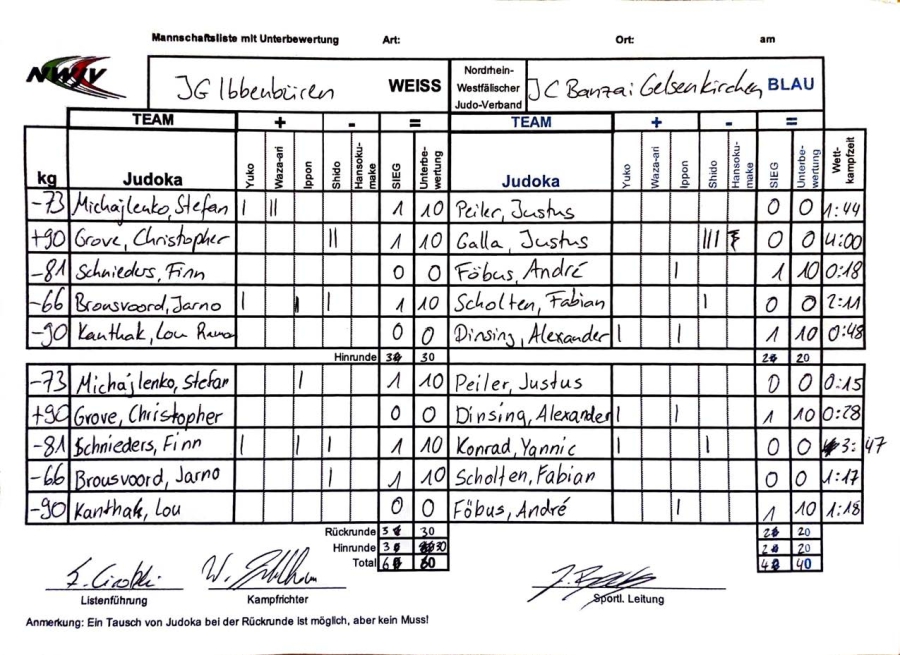 Mannschaftsliste mit Unterbewertung Art: Ort: am
NWJV JG Ibbenbüren WEISS Nordrhein-Westfälischer Judo-Verband JC Banzai Gelsenkirchen BLAU
TEAM + - = TEAM + - =
kg Judoka Yuko Waza-ari Ippon Shido Hansoku-make SIEG Unterbewertung Judoka Yuko Waza-ari Ippon Shido Hansoku-make SIEG Unterbe-wertung Wett-kampfzeit
-73 Michajlenko, Stefan I II 1 10 Peiler, Justus 0 0 1:44
+90 Grove, Christopher II 1 10 Galla, Justus III 0 0 4:00
-81 Schnieders, Finn 0 0 Föbus, André I 1 10 0:18
-66 Brousvoord, Jarno I I I 1 10 Scholten, Fabian I 0 0 2:11
-90 Kanthak, Lou 0 0 Dinsing, Alexander I I 1 10 0:48
Hinrunde 3 30 2 20
-73 Michajlenko, Stefan I 1 10 Peiler, Justus 0 0 0:15
+90 Grove, Christopher 0 0 Dinsing, Alexander I I 1 10 0:28
-81 Schnieders, Finn I I I 1 10 Konrad, Yannic I I 0 0 3:47
-66 Brousvoord, Jarno I 1 10 Scholten, Fabian 0 0 1:17
-90 Kanthak, Lou 0 0 Föbus, André I 1 10 1:18
Rückrunde 3 30 2 20
Hinrunde 3 30 2 20
Total 6 60 4 40
Listenführung Kampfrichter Sportl. Leitung
Anmerkung: Ein Tausch von Judoka bei der Rückrunde ist möglich, aber kein Muß!